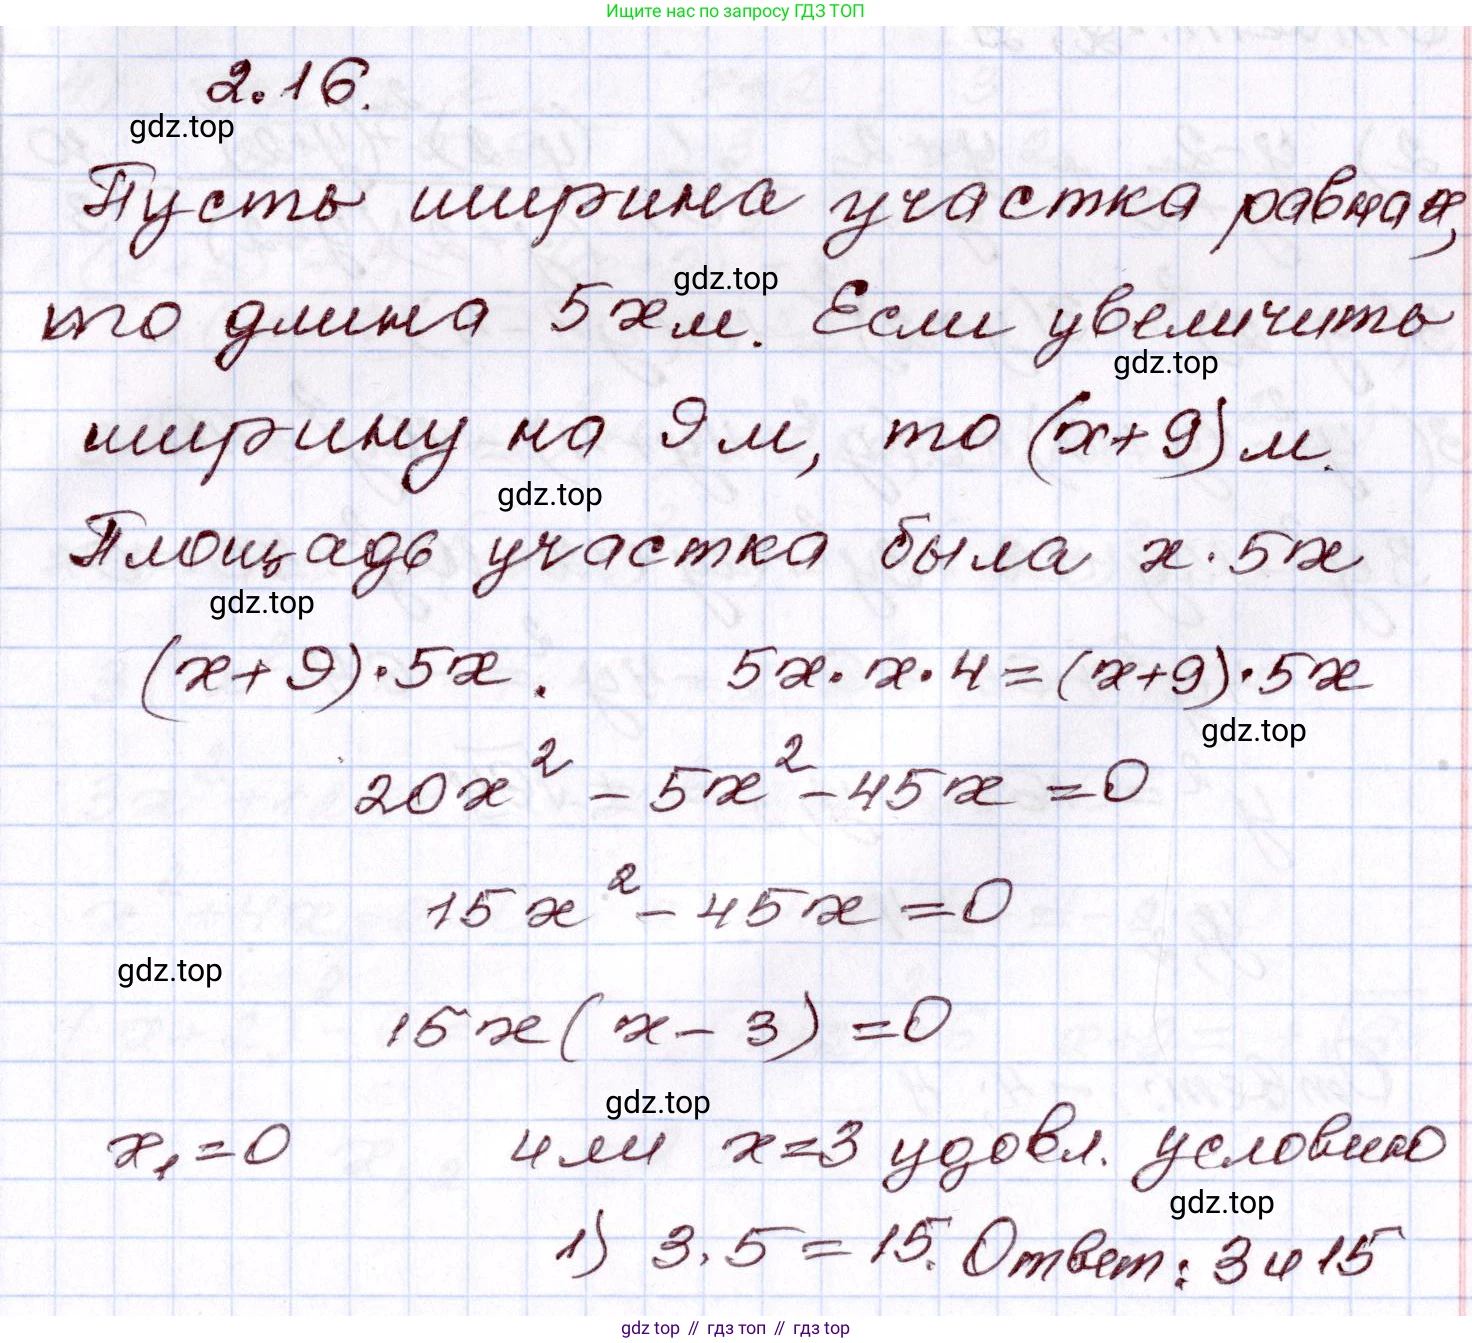 Ищите нас по запросу ГДЗ ТОП
2.16.
gdz.top
Пусть ширина участка равна x,
то длина 5x м. Если увеличить
gdz.top
gdz.top
ширину на 9 м, то (x+9) м.
gdz.top
Площадь участка была x · 5x
gdz.top
(x+9) · 5x . 5x · x · 4 = (x+9) · 5x
gdz.top
20x² - 5x² - 45x = 0
15x² - 45x = 0
gdz.top
15x(x - 3) = 0
gdz.top
x₁ = 0 или x = 3 удовл. условию
gdz.top
1) 3 · 5 = 15. Ответ: 3 и 15
gdz top // гдз топ // gdz top